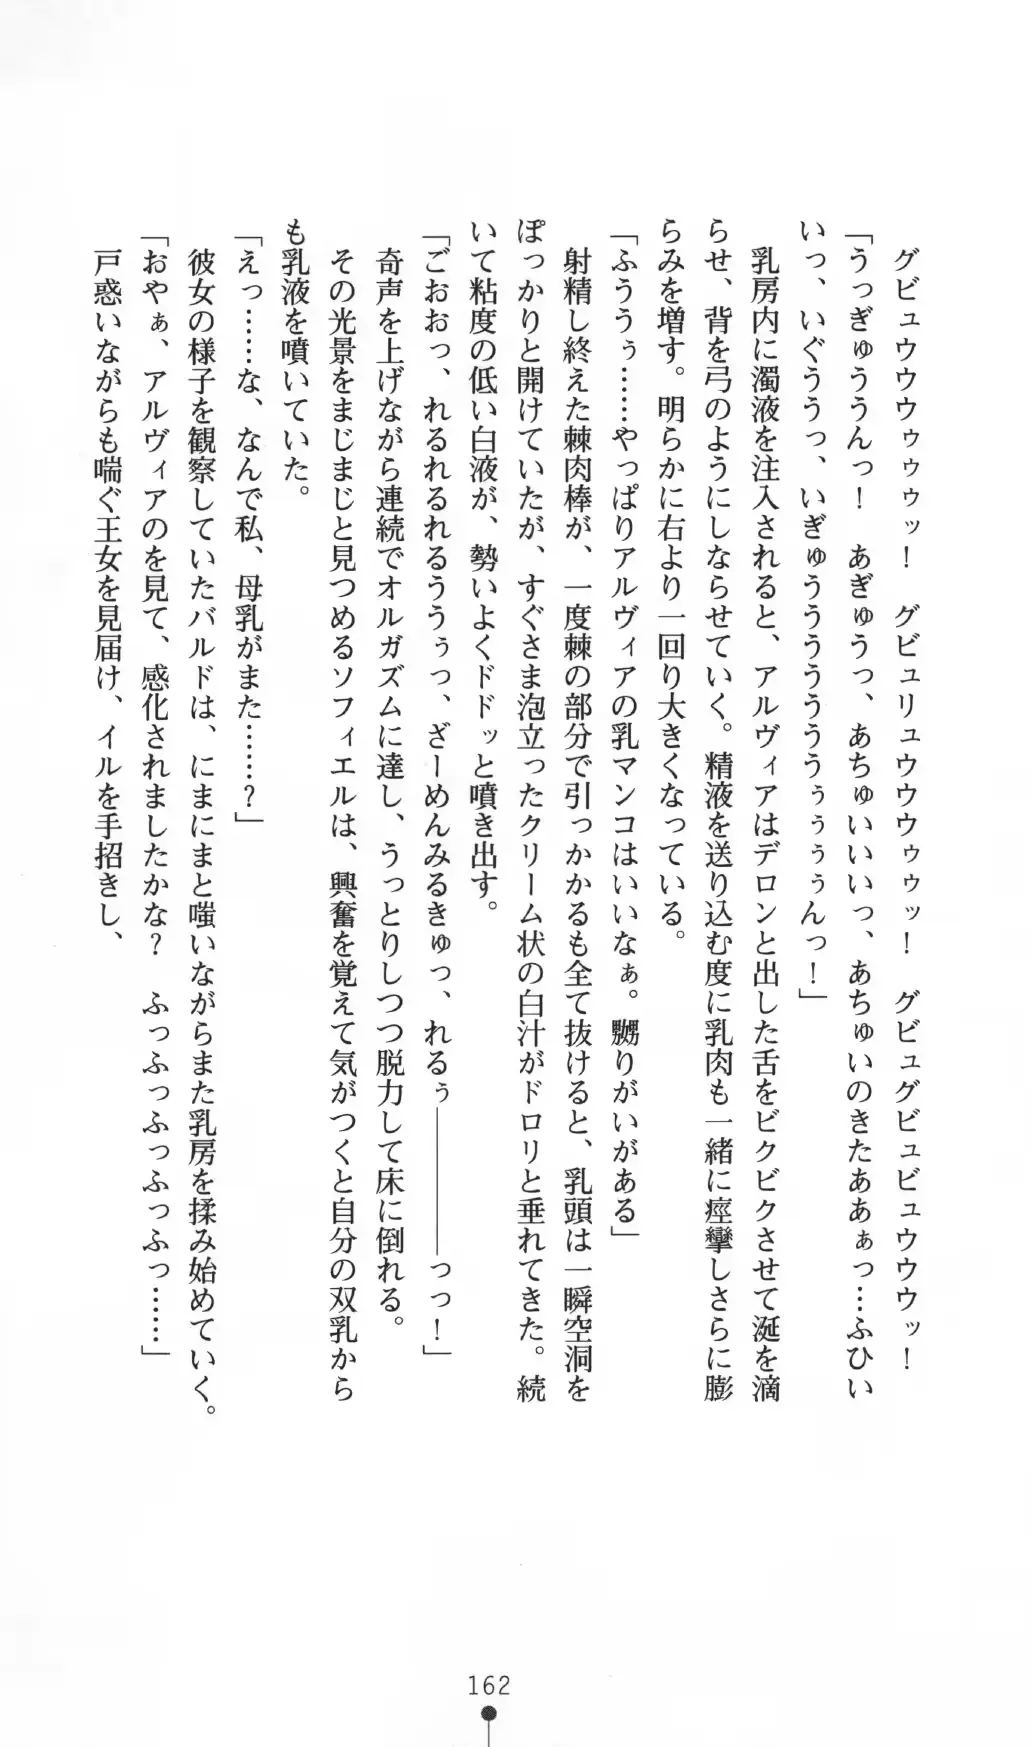 グビュウウウゥゥゥッ！　グビュリュウウウゥゥッ！　グビュグビュビュウウウッ！
「うっぎゅううんっ！　あぎゅうっ、あちゅいいいっ、あちゅいのきたああぁっ…ふひい
いっ、いぐううっ、いぎゅうううううううぅぅぅぅんっ！」
乳房内に濁液を注入されると、アルヴィアはデロンと出した舌をビクビクさせて涎を滴
らせ、背を弓のようにしならせていく。精液を送り込む度に乳肉も一緒に痙攣しさらに膨
らみを増す。明らかに右より一回り大きくなっている。
「ふううぅ……やっぱりアルヴィアの乳マンコはいいなぁ。嬲りがいがある」
射精し終えた棘肉棒が、一度棘の部分で引っかかるも全て抜けると、乳頭は一瞬空洞を
ぽっかりと開けていたが、すぐさま泡立ったクリーム状の白汁がドロリと垂れてきた。続
いて粘度の低い白液が、勢いよくドドッと噴き出す。
「ごおおっ、れるれるれるううぅっ、ざーめんみるきゅっ、れるぅ――――――っっ！」
奇声を上げながら連続でオルガズムに達し、うっとりしつつ脱力して床に倒れる。
その光景をまじまじと見つめるソフィエルは、興奮を覚えて気がつくと自分の双乳から
も乳液を噴いていた。
「えっ……な、なんで私、母乳がまた……？」
彼女の様子を観察していたバルドは、にまにまと嗤いながらまた乳房を揉み始めていく。
「おやぁ、アルヴィアのを見て、感化されましたかな？　ふっふっふっふっふっ……」
戸惑いながらも喘ぐ王女を見届け、イルを手招きし、
162